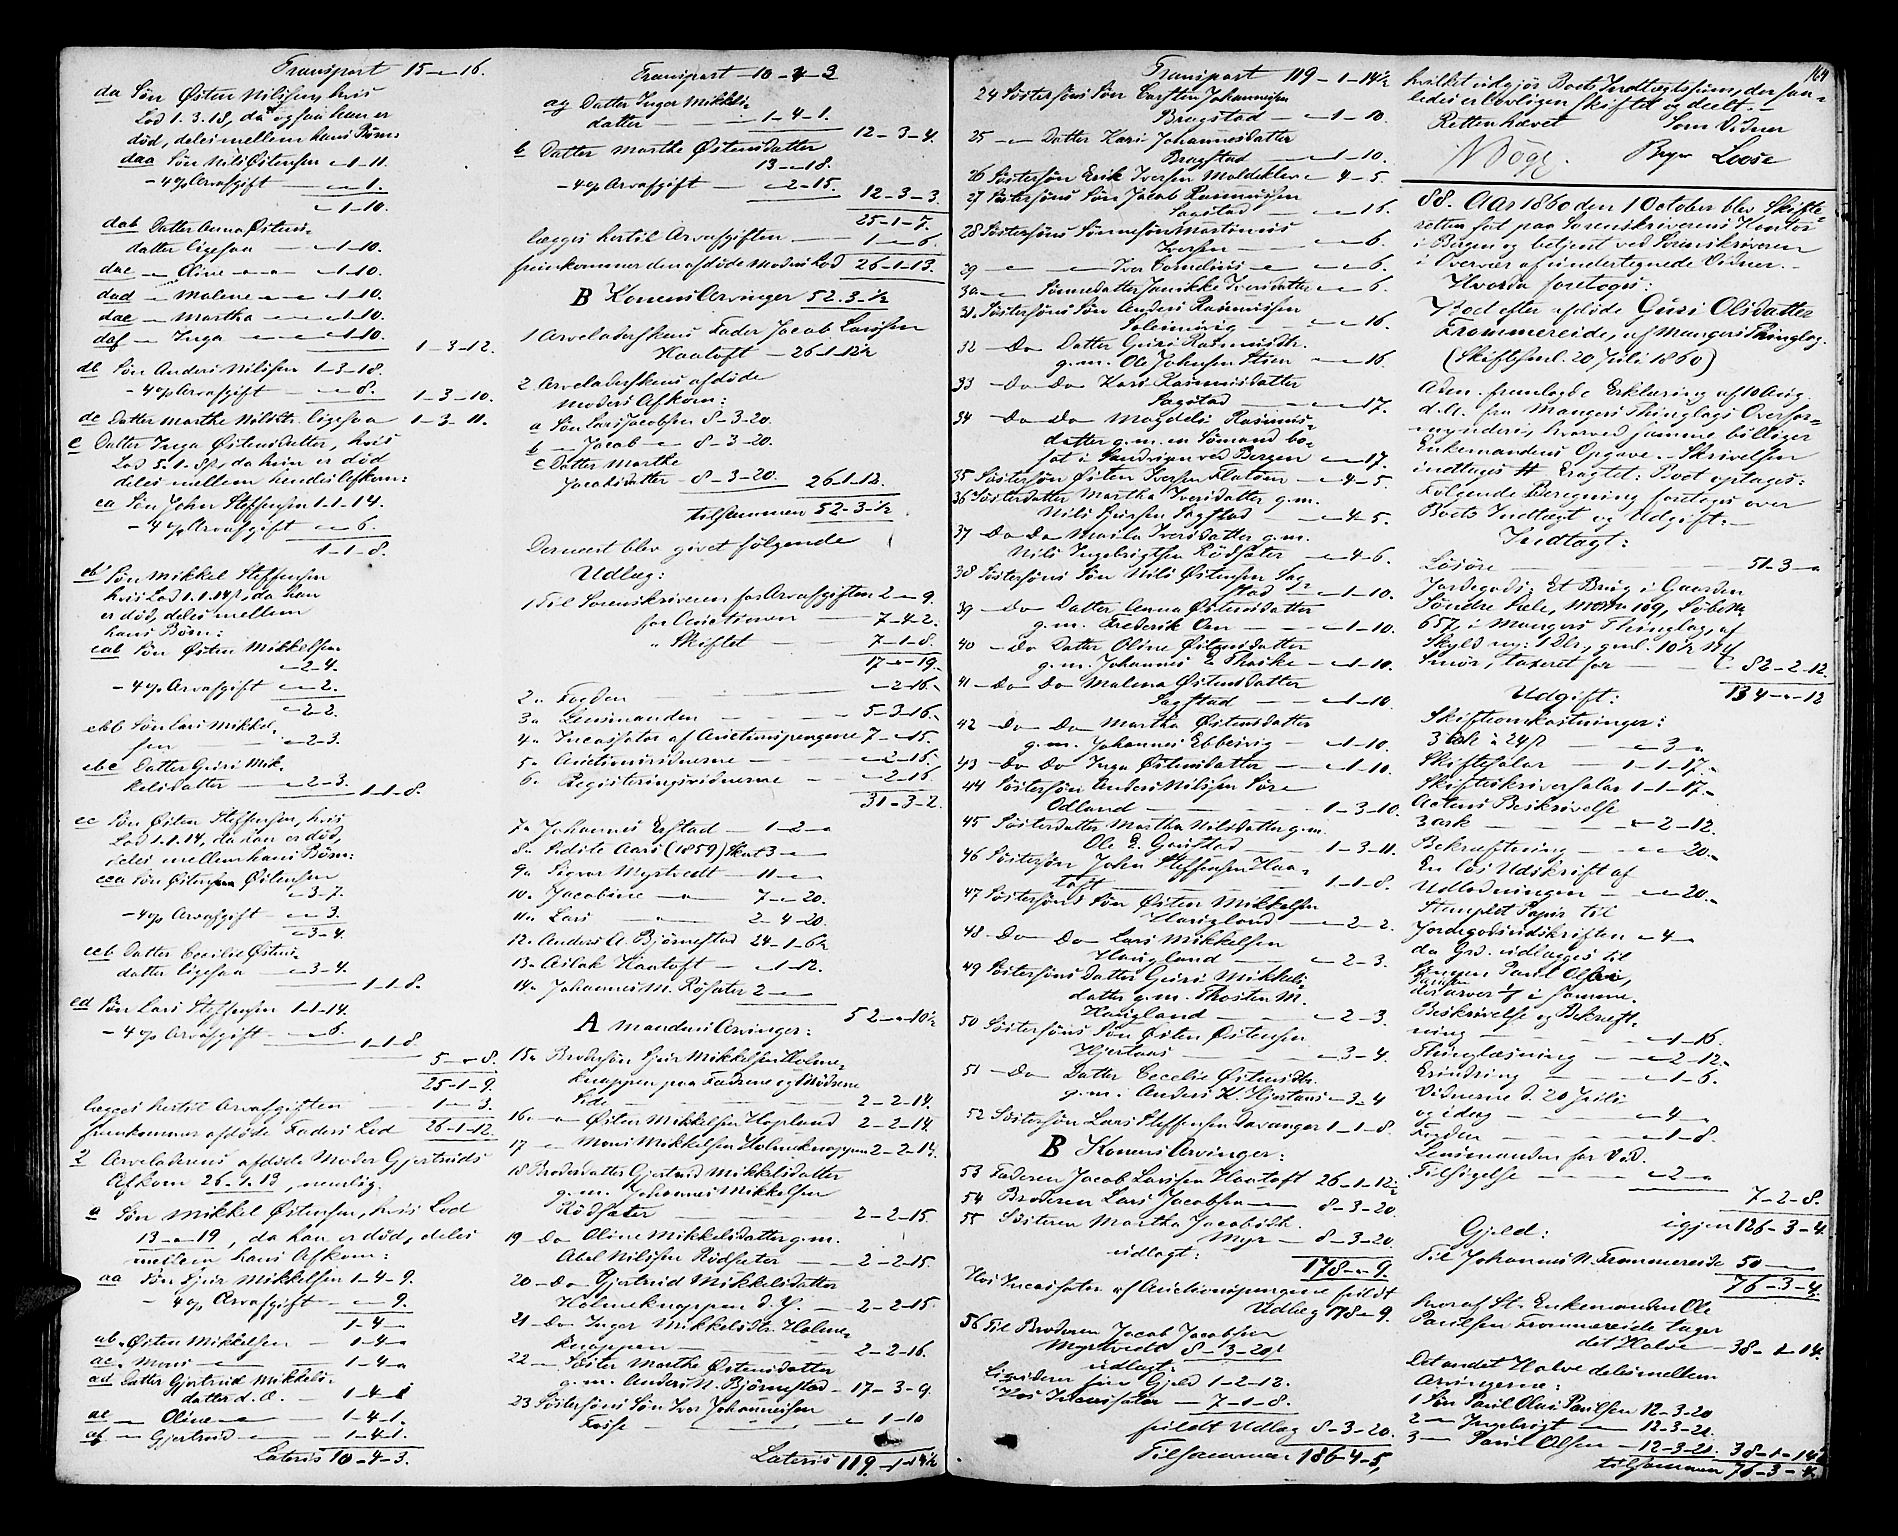 Transport 15 - " - 16.
da Søn Østen Nilssen, hvis
Lod 1. 3. 18, da ogsaa han er
død, deles mellem hans Børn:
daa Søn Nils Østensen " - 1 - 11.
- 4 % Arvafgift - " - " - 1.
" - 1 - 10.
dab Datter Anna Østens-
datter ligesaa - " - 1 - 10.
dac - " - Oline - " - " - 1 - 10.
dad - " - Malene - " - " - 1 - 10.
dae - " - Martha - " - " - 1 - 10.
daf - " - Inga - " - " - 1 - 10.
1 - 3 - 12.
db Søn Anders Nilssen 1 - 3 - 18.
- 4 % Arvafgift - " - " - 8.
1 - 3 - 10.
dc Datter Marthe Nilsdtr. ligesaa 1 - 3 - 11.
e Datter Inga Østensdatter, hvis
Lod 5. 1. 8, da hun er død
deles mellem hendes Afkom:
ea Søn John Steffensen 1 - 1 - 14.
- 4 % Arvafgift " - " - 6.
1 - 1 - 8.
eb Søn Mikkel Steffensen
hvis Lod 1. 1. 14, da han
er død, deles mellem
hans Børn:
eab Søn Østen Mikkelsen
" - 2 - 4.
- 4 % Arvafgift " - " - 2.
" - 2 - 2.
ebb Søn Lars Mikkel-
sen " - 2 - 3.
ebc Datter Guri Mik-
kelsdatter - " - 2 - 3.
1 - 1 - 8.
ec Søn Østen Steffensen, hvis
Lod 1. 1. 14, da han er død,
deles mellem hans Børn:
eca Søn Østen Østensen
" - 3 - 7.
- 4 % Arvafgift - " - " - 3.
" - 3 - 4.
ecb Datter Cecilie Østens-
datter ligesaa - " - 3 - 4.
1 - 1 - 8.
ed Søn Lars Steffensen 1 - 1 - 14.
- 4 % Arvafgift - " - " - 6.
1 - 1 - 8
5 - " - 8.
25 - 1 - 9.
lægges hertil Arvafgiften 1 - " - 3.
fremkommer afdøde Faders Lod 26 - 1 - 12.
2 Arveladerens afdøde Moder Gjertruds
Afkom 26 - 1 - 13, nemlig.
a Søn Mikkel Østensen, hvis Lod
13 - " - 19, da han er død, deles
mellem hans Afkom:
aa Søn Sjur Mikkelsen 1 - 4 - 9.
- 4 % Arvafgift - " - " - 9.
1 - 4 - "
ab " Østen Mikkelsen - 1 - 4 - "
ac " Mons - " - 1 - 4 - "
ad Datter Gjertrud Mikkels-
datter d. Æ. - 1 - 4 - 1
ae - " - Oline - " - 1 - 4 - 1.
af - " - Gjertrud - " - 1 - 4 - 1.
Lateris 10 - 4 - 3.
Transport 10 - 4 - 3
ag Datter Inger Mikkels-
datter - 1 - 4 - 1.
12 - 3 - 4.
b Datter Marthe Østensdatter
13 - " - 18.
- 4 % Arvafgift - " - 2 - 15.
12 - 3 - 3.
25 - 1 - 7.
lægges hertil Arvafgiften 1 - " - 6.
fremkommer den afdøde Moders Lod 26 - 1 - 13.
B Konens Arvinger 52 - 3 - ½
1 Arveladerskens Fader Jacob Larssen
Haatoft - 26 - 1 - 12½
2. Arveladerskens afdøde
Moders Afkom:
a Søn Lars Jacobsen 8 - 3 - 20.
b - " - Jacob - " - 8 - 3 - 20.
c Datter Marthe
Jacobsdatter - 8 - 3 - 20.
26 - 1 - 12.
tilsammen 52 - 3 - ½
Dernæst blev givet følgende
Udlæg:
1 Til Sorenskriveren for Arvafgiften 2 - " - 9.
for Auctionen - 7 - 4 - 2.
" Skiftet - 7 - 1 - 8.
17 - " - 19.
2 " Fogden " - 2 - 16.
3 " Lensmanden - 5 - 3 - 16.
4 " Incassator af Auctionspengene 7 - " - 15.
5 " Auctionsvidnerne " - 2 - 16.
6 " Registeringsvidnerne " - 2 - 16
31 - 3 - 2.
7 " Johannes Erstad - 1 - 2 - "
8 " Sidste Aars (1859) Skat 3 - "
9 " Sigvor Myrtvedt - 11 - "
10 " Jacobine - " - 7 - " - 20.
11 " Lars - " - 2 - 4 - 20.
12 " Anders A. Bjørnestad 24 - 1 - 6½
13 " Aslak Haatoft - " - 1 - 12.
14 " Johannes M. Røsæter 2 - "
52 - " - 10½
A Mandens Arvinger:
15 " Brodersøn Sjur Mikkelsen Holme-
knappen paa Fædrene og Mødrene
Side - 2 - 2 - 14.
16 " - " - Østen Mikkelsen Hopland 2 - 2 - 14.
17 - " - Mons Mikkelsen Holmeknappen 2 - 2 - 14.
18 Broderdatter Gjertrud Mikkelsdatter
g. m. Johannes Mikkelsen
Rødsæter 2 - 2 - 15.
19 - Do Oline Mikkelsdatter g. m.
Abel Nilssen Rødseter 2 - 2 - 15.
20 - Do Gjertrud Mikkelsdatter
Holmeknappen d. Y. - 2 - 2 - 15.
21 - Do Inger Mikkelsdtr. Holme-
knappen - 2 - 2 - 16.
22 - Søster Marthe Østensdatter
g. m. Anders N. Bjørnestad - 17 - 3 - 9.
23 Søstersøns Søn Iver Johannessen
" - 1 - 10
Lateris 119 - 1 - 14½
Transport 119 - 1 - 14½
24 Søstersøns Søn Carsten Johannessen
Bragstad - " - 1 - 10.
25 - " - Datter Kari Johannesdatter
Bragstad - " - 1 - 10.
26 Søstersøn Erik Iversen Moldeklev " - 4 - 5.
27 Søstersøns Søn Jacob Rasmussen
Sagstad - " - " - 16.
28 Søstersøns Sønnesøn Martinus
Iversen - " - " - 6.
29 - " - " - Iver Cornelius - " - " - 6.
30 - " - Sønnedatter Jannikke Iversdatter " - " - 6.
31. Søstersøns Søn Anders Rasmussen
Soleimsvig - " - " - 16.
32 - Do Datter Guri Rasmusdtr.
g. m. Ole Johnsen Stien " - " - 16
33 - Do Do Kari Rasmusdatter
Sagstad - " - " - 17.
34 - Do Do Magdeli Rasmus-
datter g. m. en Sømand bo-
sat i Sandvigen ved Bergen " - " - 17.
35 Søstersøn Østen Iversen Flatøen - " - 4 - 5.
36 Søsterdatter Martha Iversdatter g. m.
Nils Sjursen Sagstad " - 4 - 5.
37 - Do Do Marta Iversdatter g. m.
Nils Ingebrigtsen Rødsæter " - 4 - 6.
38 Søstersøns Søn Nils Østensen Sag-
stad - " - 1 - 10.
39 - Do Datter Anna Østensdatter
g. m. Frederik Orn " - 1 - 10.
40 - Do Datter Oline Østensdatter
g. m. Johannes E. Thoske " - 1 - 10.
41 - Do Do Malena Østensdatter
Sagstad - " - 1 - 10.
42 - Do Do Martha Østensdatter
g. m. Johannes Ebbesvig - " - 1 - 10.
43 - Do Do Inga Østensdatter - " - 1 - 10.
44 Søstersøn Anders Nilssen Søre
Odland - 1 - 3 - 10.
45 Søsterdatter Martha Nilsdatter g. m.
Ole E. Gaustad - 1 - 3 - 11.
46 Søstersøn John Steffensen Haa-
toft - 1 - 1 - 8.
47 Søstersøns Søn Østen Mikkelsen
Haugland " - 2 - 2.
48 - Do Do Lars Mikkelsen
Haugland " - 2 - 3.
49 Søstersøns Datter Guri Mikkels-
datter g. m. Thosten M.
Haugland - " - 2 - 3.
50 Søstersøns Søn Østen Østensen
Hjertaas - " - 3 - 4.
51 - Do Datter Cecelie Østensdtr.
g. m. Anders K. Hjertaas " - 3 - 4
52 Søstersøn Lars Steffensen Davanger 1 - 1 - 8.
B Konens Arvinger:
53 Faderen Jacob Larssen Haatoft 26 - 1 - 12½
54 Broderen Lars Jacobsen - " - 8 - 3 - 20.
55 Søsteren Martha Jacobsdtr.
Myr - " - 8 - 3 - 20.
udlagt: 178 - " - 9.
Hos Incassator af Auctionspengene fuldt
Udlæg 178 - " - 9.
56 Til Broderen Jacob Jacobsen
Myrtvedt 8 - 3 - 20
udlagt:
Ligeiden sin Gjæld 1 - 2 - 12.
Hos Incassator - 7 - 1 - 8.
fuldt Udlæg 8 - 3 - 20.
Tilsammen 186 - 4 - 5,
164
hvilket udgjør Boets Indtægtssum, der saa-
ledes er lovligen skiftet og deelt. -
Retten hævet Som Vidner
Bøgh. Beyer Loose
88. Aar 1860 den 1 October blev Skifte-
retten sat paa Sorenskriverens Kontor
i Bergen og betjent ved Sorenskriveren
i Overvær af undertegnede Vidner. -
Hvorda foretoges:
Boet efter afdøde Guri Olsdatter
Frommereide, af Mangers Thinglag.
(Skiftesml. 20 Juli 1860)
Adm. fremlagde Erklæring af 10 Aug.
d. A. fra Mangers Thinglags Overfor-
mynderi, hvorved samme billiger
Enkemandens Opgave. - Skrivelsen
indtages # Eragtet: Boet optages:
Følgende Beregning foretoges over
Boets Indtægt og Udgift: -
Indtægt:
Løsøre 51 - 3 - "
Jordegods; Et Brug i Gaarden
Søndre Sæle, Matr. 109, Løbe №
657, i Mangers Thinglag, af
Skyld ny: 1 Dlr, gml. 10½ Mk
Smør, taxeret for 82 - 2 - 12.
134 - " - 12
Udgift:
Skifteomkostninger:
3 Ark à 24 ß " - 3 - "
Skiftesalar - 1 - 1 - 17.
Skifteskriversalar 1 - 1 - 17.
Actens Beskrivelse
3 Ark " - 2 - 12.
Bekræftning - " - " - 20.
En løs Udskrift af
Udlodningen - " - " - 20.
Stemplet Papir til
Jordegodsudskriften " - 4 - "
da Grd. udlægges til
Sønnen Paul Olsen,
der arver i samme.
Beskrivelse og Bekræft-
ning - " - 1 - 16.
Thinglæsning - " - 2 - 12.
Erindring " - 1 - 6.
Vidnerne d. 20 Juli
og idag - " - 4 - "
Fogden - " - 1 - 8.
Lensmanden for Vid.
Tilsigelse " - 2 - "
7 - 2 - 8.
igjen 126 - 3 - 4.
Gjeld:
Til Johannes N. Frommereide 50 - "
76 - 3 - 4.
hvoraf St. Enkemanden Ole
Paulsen Frommereide tager
det Halve - 38 - 1 - 14.
Det andet Halve deles mellem
Arvingerne:
1 Søn Paul Olai Paulsen 12 - 3 - 20
2 - " - Ingebrigt - " - 12 - 3 - 21.
3 - " - Paul Olsen - 12 - 3 - 21. 38 - 1 - 14
tilsammen 76 - 3 - 4.